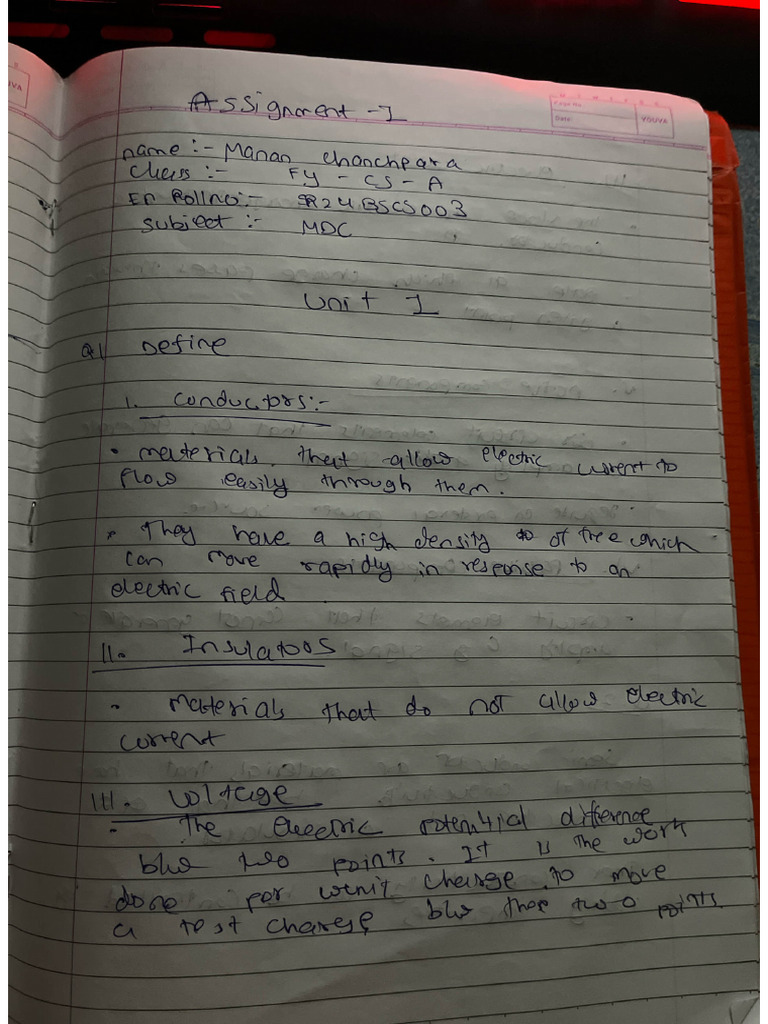 Assignment - 1
Page No.
Date:
YOUVA
name :- Manan Chanchpara
Class :- FY - CS - A
En Rollno :- SR24BSCS003
Subject :- MDC
Unit 1
Q1 Define
1. Conductors :-
• materials that allow electric current to
flow easily through them.
• They have a high density of free which
can move rapidly in response to an
electric field.
II. Insulators
• materials that do not allow electric
current
III. Voltage
• The electric potential difference
b/w two points. It is the work
done per unit charge to move
a test charge b/w thos two points